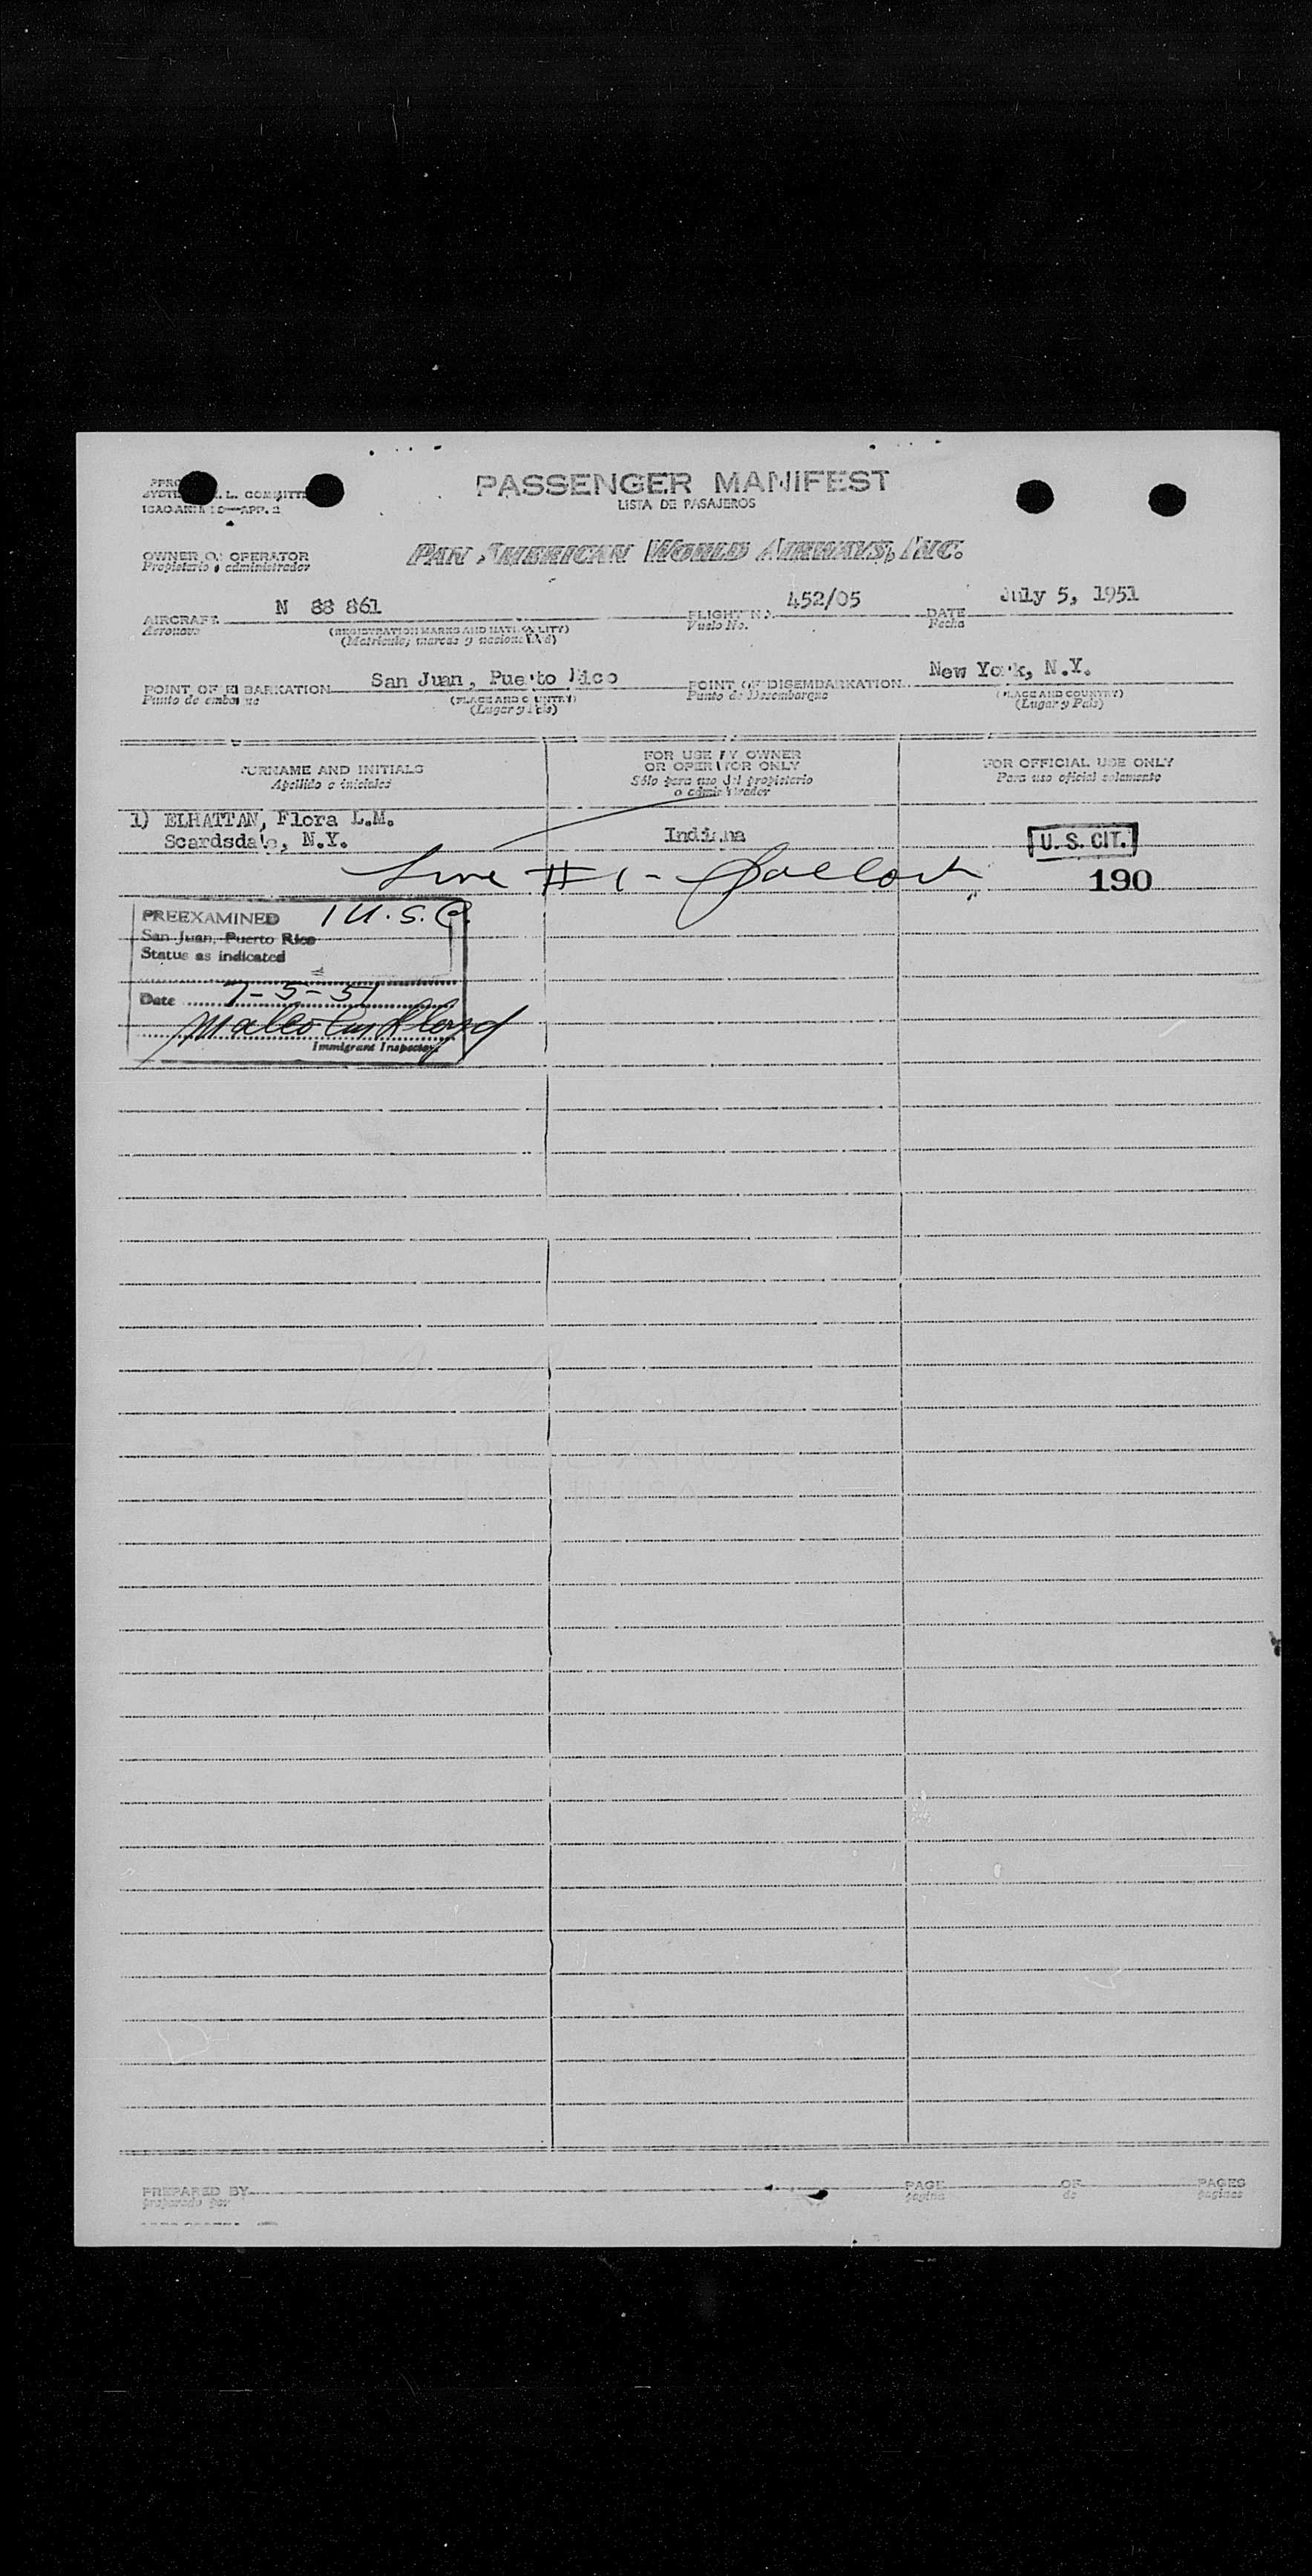 PASSENGER MANIFEST
LISTA DE PASAJEROS
L. COMMITT
ICAO ANNEX 9—APP. 2
OWNER OR OPERATOR
Propietario o administrador
PAN AMERICAN WORLD AIRWAYS, INC.
AIRCRAFT N 88 861 FLIGHT NO. 452/05 DATE July 5, 1951
Aeronave (REGISTRATION MARKS AND NATIONALITY) Vuelo No. Fecha
(Matricula, marcas y nacionalidad)
POINT OF EMBARKATION San Juan, Puerto Rico POINT OF DISEMBARKATION New York, N.Y.
Punto de embarque (PLACE AND COUNTRY) Punto de Desembarque (PLACE AND COUNTRY)
(Lugar y País) (Lugar y País)
SURNAME AND INITIALS
Apellido e iniciales
FOR USE BY OWNER
OR OPERATOR ONLY
Sólo para uso del propietario
o administrador
FOR OFFICIAL USE ONLY
Para uso oficial solamente
1) ELHATTAN, Flora L.M.
Scardsdale, N.Y. Indiana U. S. CIT.
Line # 1 - 190
PREEXAMINED 1 U.S.C.
San Juan, Puerto Rico
Status as indicated
Date 7-5-51
Immigrant Inspector
PREPARED BY PAGE OF PAGES
preparado por pagina de paginas